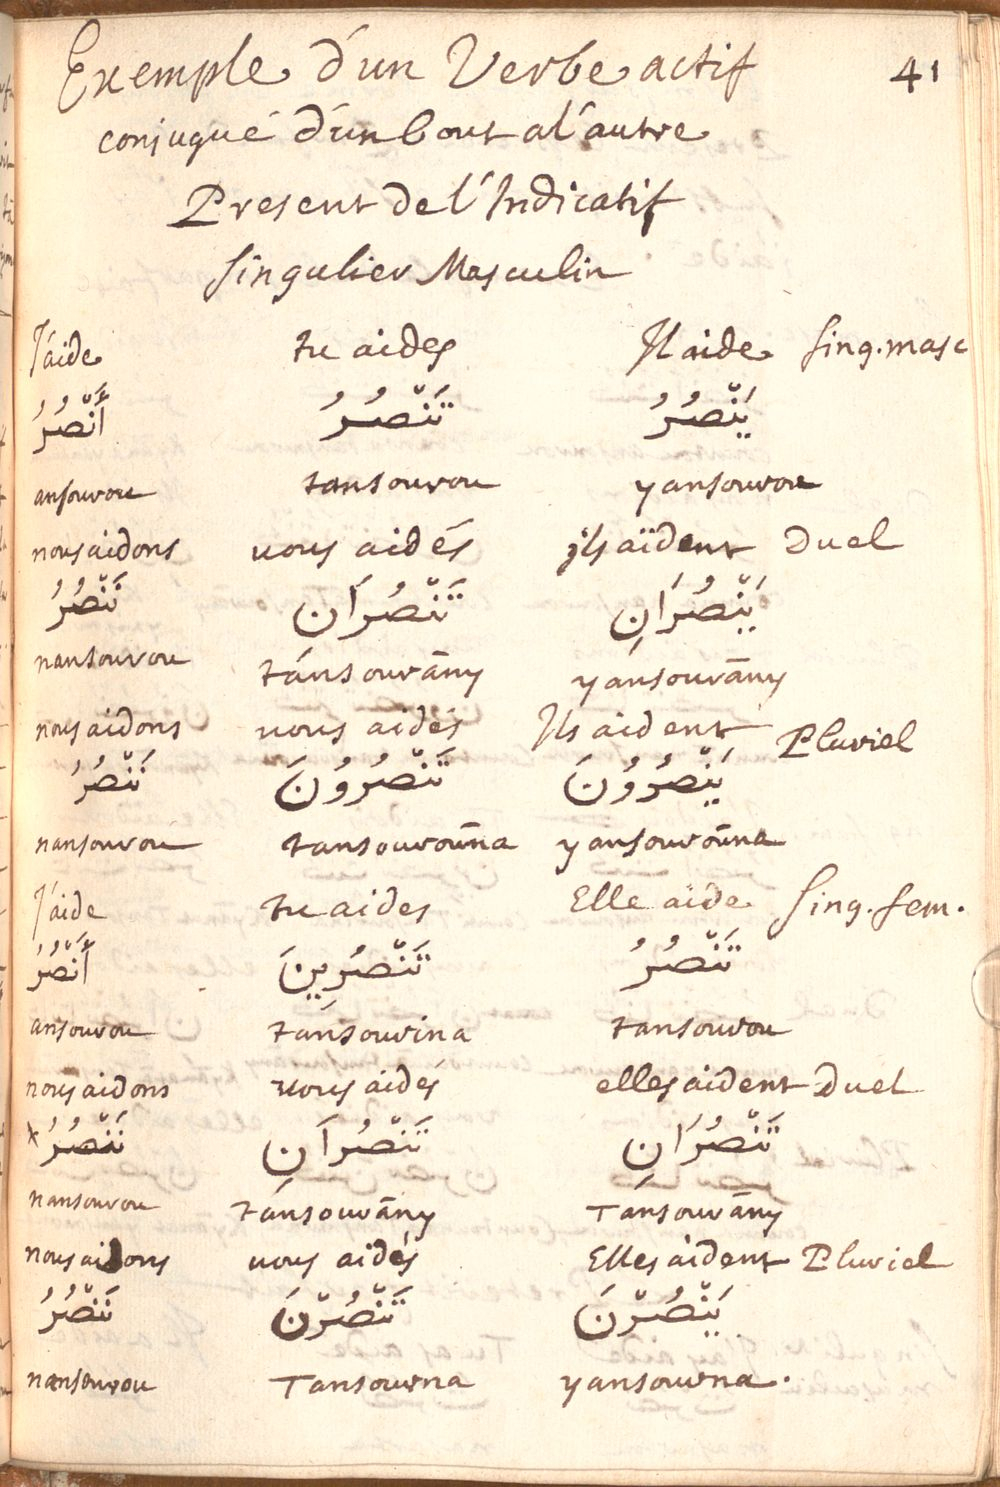 Exemple d'un Verbe actif 41
conjugué d'un bout a l'autre
Present de l'Indicatif
singulier Masculin
J'aide tu aides Il aide sing. masc
أَنْصُرُ تَنْصُرُ يَنْصُرُ
ansourou tansourou yansourou
nous aidons vous aidés ils aïdent Duel
نَنْصُرُ تَنْصُرَانِ يَنْصُرَانِ
nansourou tánsourāny yánsourāny
nous aidons vous aidés Ils aident Pluriel
نَنْصُرُ تَنْصُرُونَ يَنْصُرُونَ
nansourou tansourouna yansourouna
J'aide tu aides Elle aïde sing. fem.
أَنْصُرُ تَنْصُرِينَ تَنْصُرُ
ansourou tansourina tansourou
nous aidons vous aidés elles aident Duel
نَنْصُرُ تَنْصُرَانِ تَنْصُرَانِ
nansourou tánsourāny Tánsourāny
nous aidons vous aidés Elles aident Pluriel
نَنْصُرُ تَنْصُرْنَ يَنْصُرْنَ
nansourou Tansourna yansourna.